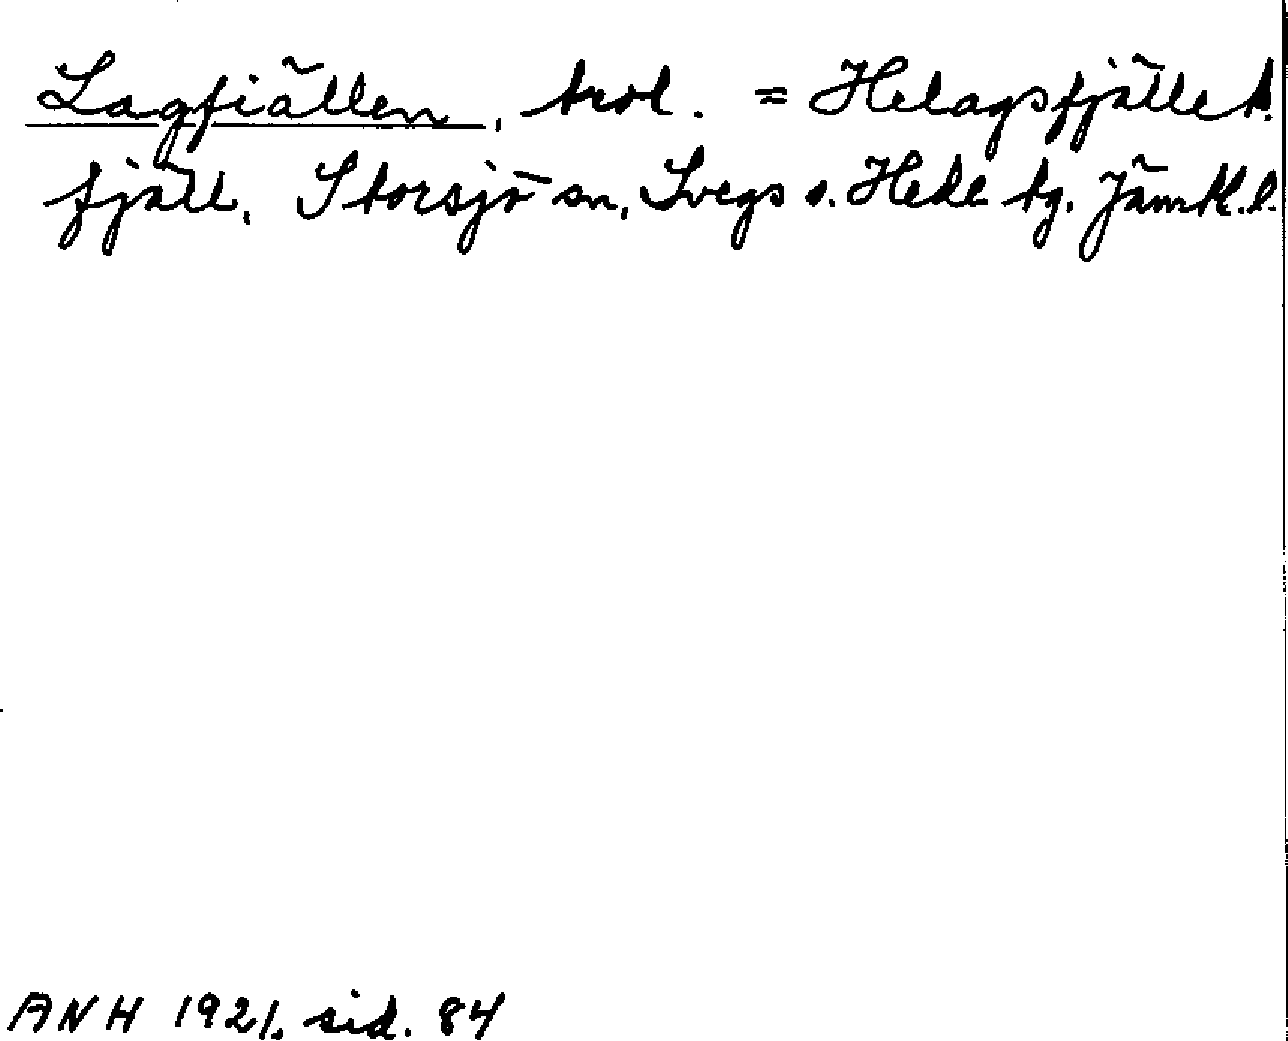 Lagfiällen, trol. = Helagsfjället.
fjäll, Storsjö sn, Svegs o. Hede tg. Jämtl. l.
ANH 1921, sid. 84